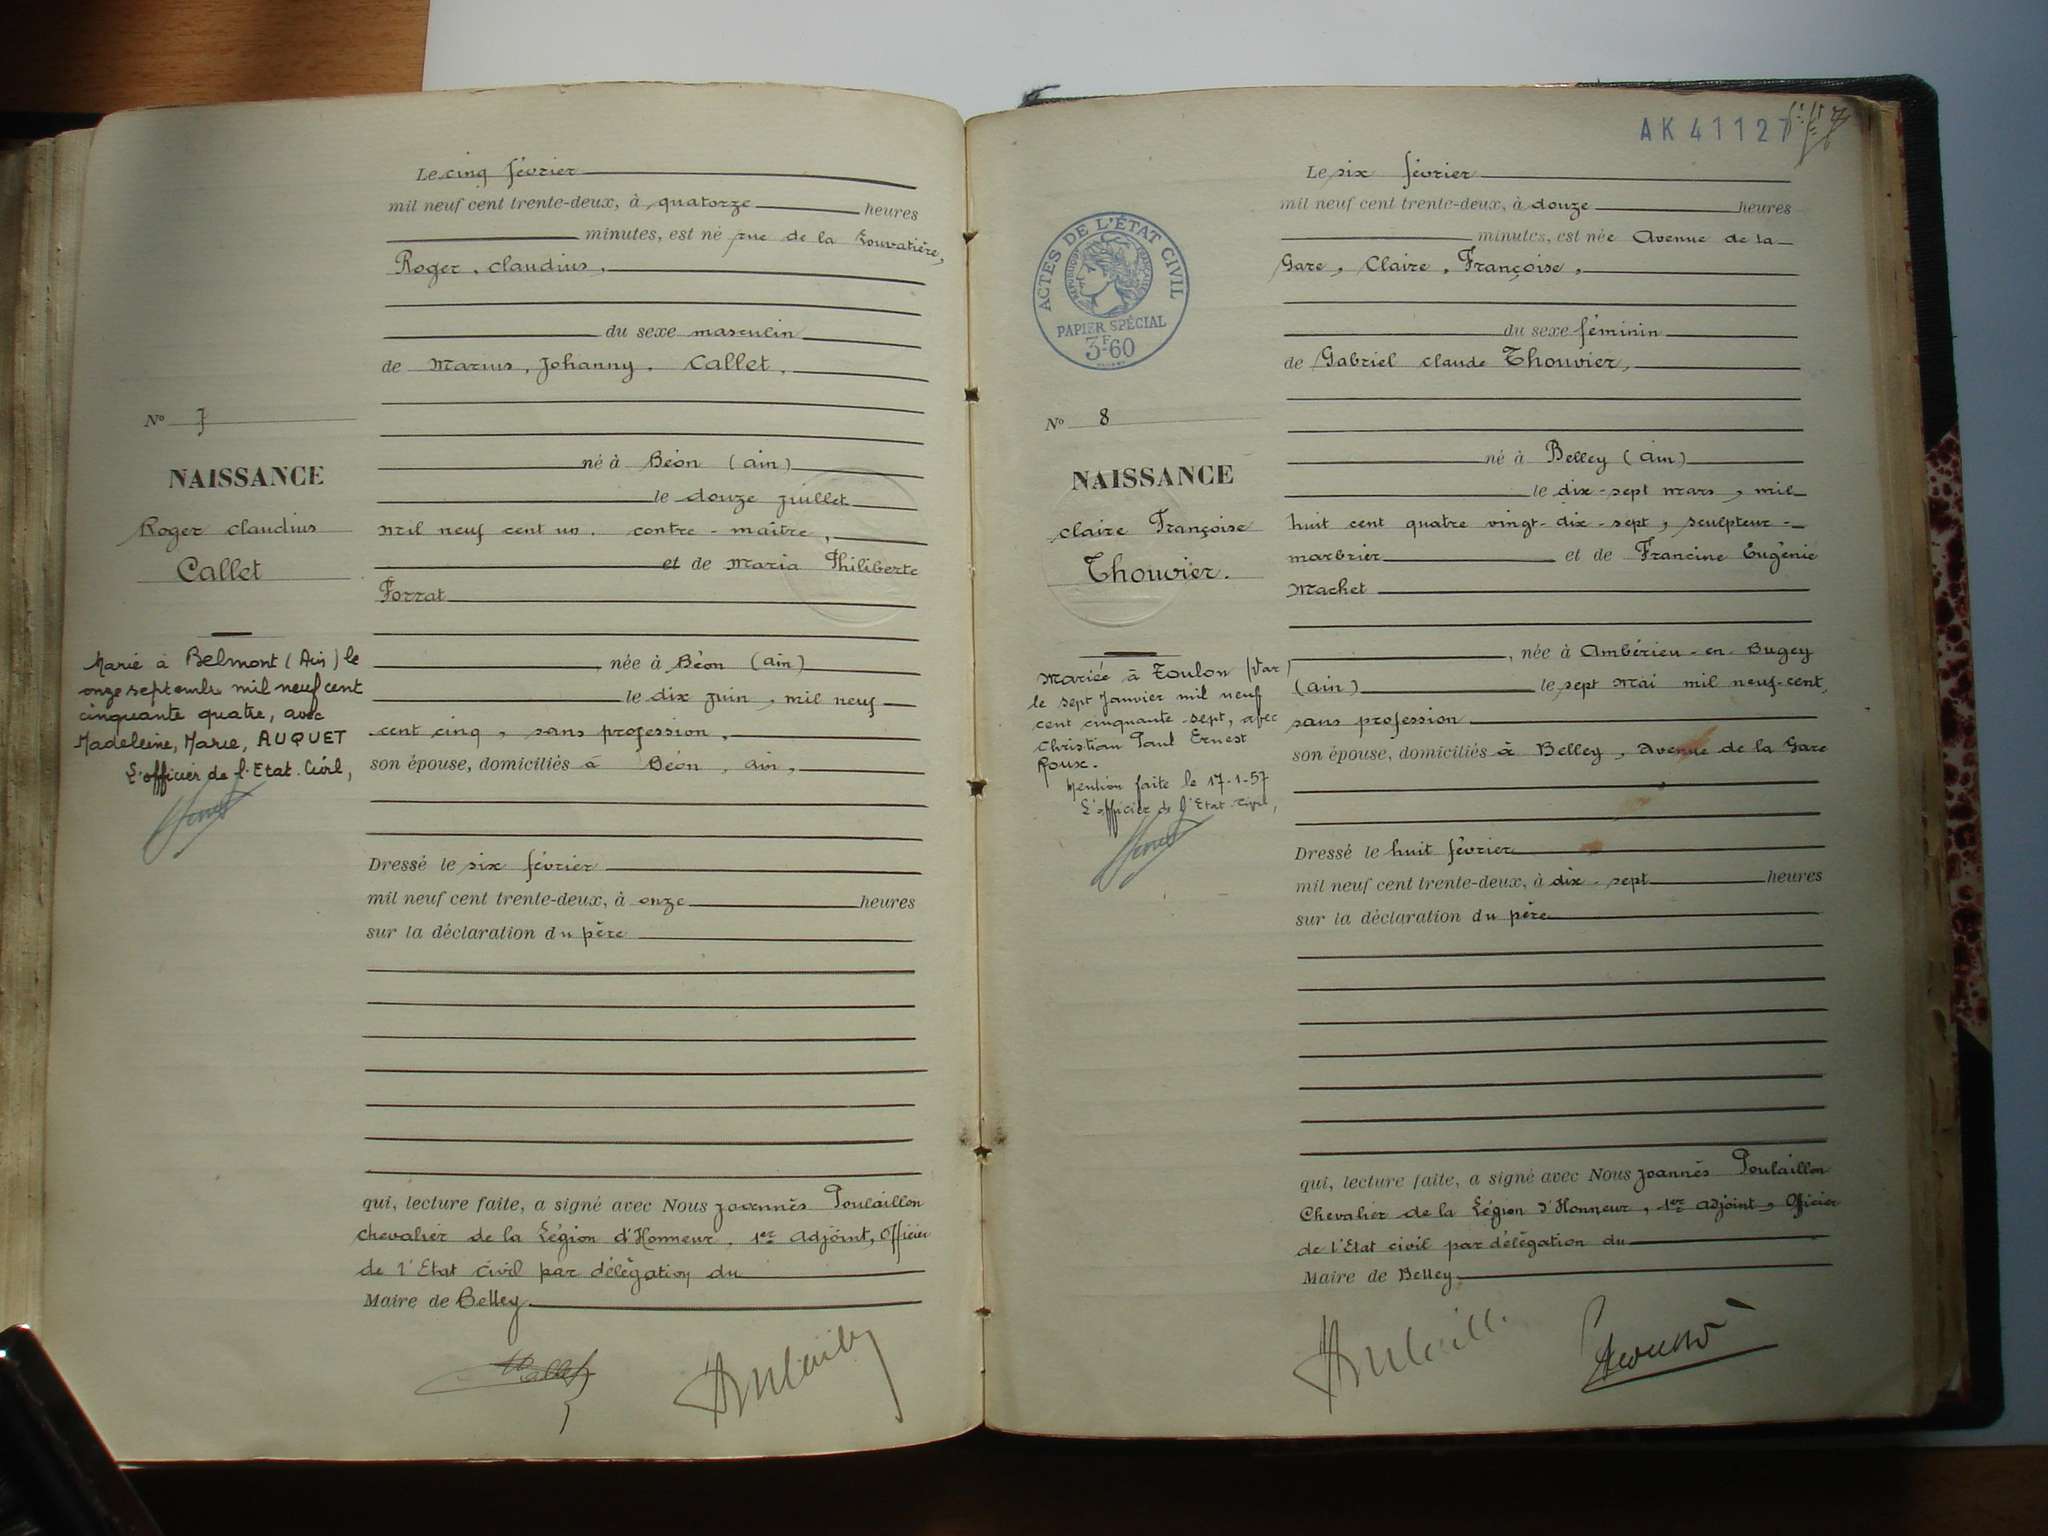 Le cinq février
mil neuf cent trente-deux, à quatorze heures
minutes, est né rue de la
Roger, Claudius,
du sexe masculin
de Marius, Johanny, Callet,
né à Béon (Ain)
le douze juillet
mil neuf cent un, contre-maître,
et de Maria Philiberte
Forrat
née à Béon (Ain)
le dix juin, mil neuf
cent cinq, sans profession,
son épouse, domiciliés à Béon, Ain,
Dressé le six février
mil neuf cent trente-deux, à onze heures
sur la déclaration du père
qui, lecture faite, a signé avec Nous Joannès Poulaillon
Chevalier de la Légion d'Honneur, 1er Adjoint, Officier
de l'Etat civil par délégation du
Maire de Belley
No 7
NAISSANCE
Roger Claudius
Callet
Marié à Belmont (Ain) le
onze septembre mil neuf cent
cinquante quatre, avec
Madeleine, Marie, AUQUET
L'officier de l'Etat-Civil,
AK41127
ACTES DE L'ÉTAT CIVIL
RÉPUBLIQUE FRANÇAISE
PAPIER SPÉCIAL
3F60
No 8
NAISSANCE
Claire Françoise
Thouvier.
Mariée à Toulon (Var)
le sept Janvier mil neuf
cent cinquante-sept, avec
Christian Paul Ernest
Roux.
Mention faite le 17-1-57
L'officier de l'Etat-Civil,
Le six février
mil neuf cent trente-deux, à douze heures
minutes, est née Avenue de la
Gare, Claire, Françoise,
du sexe féminin
de Gabriel Claude Thouvier,
né à Belley (Ain)
le dix-sept mars, mil
huit cent quatre vingt-dix-sept, sculpteur-
marbrier et de Francine Eugénie
Machet
, née à Ambérieu-en-Bugey
(Ain) le sept Mai mil neuf-cent,
sans profession
son épouse, domiciliés à Belley, Avenue de la Gare
Dressé le huit février
mil neuf cent trente-deux, à dix-sept heures
sur la déclaration du père
qui, lecture faite, a signé avec Nous Joannès Poulaillon
Chevalier de la Légion d'Honneur, 1er Adjoint, Officier
de l'Etat civil par délégation du
Maire de Belley